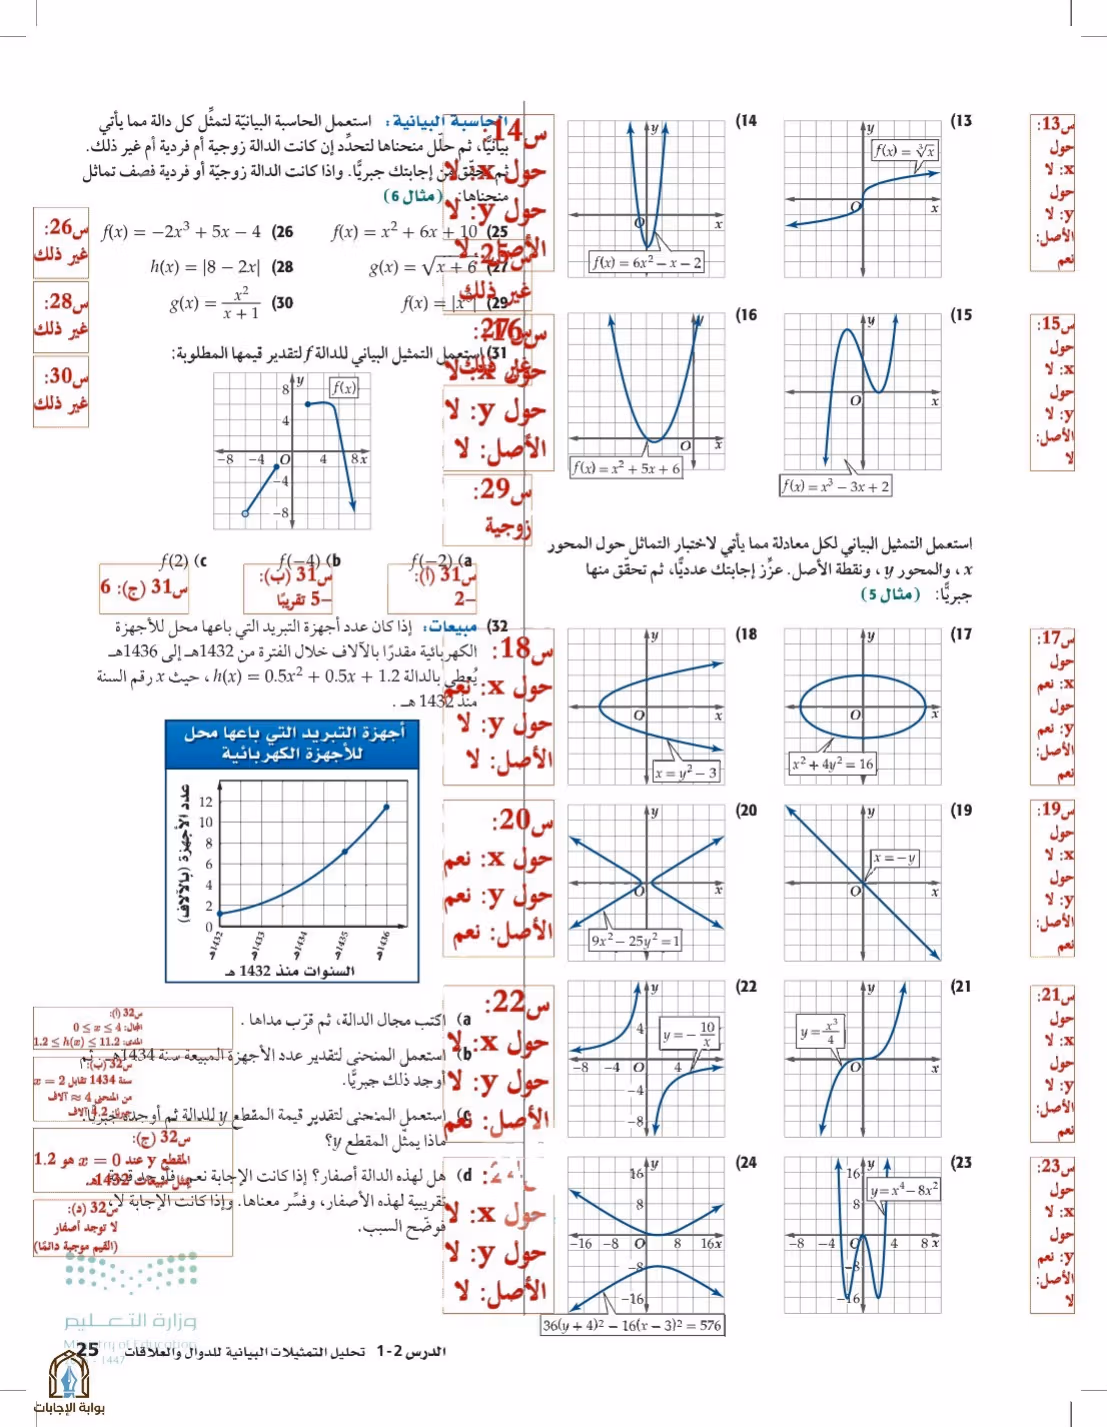 (13
f(x) = ∛x
س13:
حول
x: لا
حول
y: لا
الأصل:
نعم
(14
f(x) = 6x² − x − 2
س14:
حول x: لا
حول y: لا
الأصل: لا
(15
f(x) = x³ − 3x + 2
س15:
حول
x: لا
حول
y: لا
الأصل:
لا
(16
f(x) = x² + 5x + 6
س16:
حول x: لا
حول y: لا
الأصل: لا
استعمل التمثيل البياني لكل معادلة مما يأتي لاختبار التماثل حول المحور
x ، والمحور y ، ونقطة الأصل. عزِّز إجابتك عدديًّا، ثم تحقّق منها
جبريًّا: (مثال 5)
(17
x² + 4y² = 16
س17:
حول
x: نعم
حول
y: نعم
الأصل:
نعم
(18
x = y² − 3
س18:
حول x: نعم
حول y: لا
الأصل: لا
(19
x = −y
س19:
حول
x: لا
حول
y: لا
الأصل:
نعم
(20
9x² − 25y² = 1
س20:
حول x: نعم
حول y: نعم
الأصل: نعم
(21
y = x³/4
س21:
حول
x: لا
حول
y: لا
الأصل:
نعم
(22
y = − 10/x
−8 −4 O 4
4
−4
−8
س22:
حول x: لا
حول y: لا
الأصل: نعم
(23
y = x⁴ − 8x²
16
8
−8 −4 O 4 8 x
−8
−16
س23:
حول
x: لا
حول
y: نعم
الأصل:
لا
(24
16
8
−16 −8 O 8 16x
−8
−16
36(y + 4)² − 16(x − 3)² = 576
حول x: لا
حول y: لا
الأصل: لا
الحاسبة البيانية: استعمل الحاسبة البيانيّة لتمثِّل كل دالة مما يأتي
بيانيًّا، ثم حلّل منحناها لتحدِّد إن كانت الدالة زوجية أم فردية أم غير ذلك.
ثم تحقّق من إجابتك جبريًّا. وإذا كانت الدالة زوجيّة أو فردية فصف تماثل
منحناها: (مثال 6)
f(x) = x² + 6x + 10 (25
f(x) = −2x³ + 5x − 4 (26
g(x) = √x + 6 (27
h(x) = |8 − 2x| (28
(29
g(x) = x²/(x + 1) (30
س25:
غير ذلك
س26:
غير ذلك
س27:
غير ذلك
س28:
غير ذلك
س29:
زوجية
س30:
غير ذلك
(31 استعمل التمثيل البياني للدالة f لتقدير قيمها المطلوبة:
f(x)
y
8
4
−8 −4 O 4 8x
−4
−8
f(−2) (a
f(−4) (b
f(2) (c
س31 (أ):
−2
س31 (ب):
−5 تقريبًا
س31 (ج): 6
(32 مبيعات: إذا كان عدد أجهزة التبريد التي باعها محل للأجهزة
الكهربائية مقدرًا بالآلاف خلال الفترة من 1432هـ إلى 1436هـ
يُعطى بالدالة h(x) = 0.5x² + 0.5x + 1.2 ، حيث x رقم السنة
منذ 1432 هـ .
أجهزة التبريد التي باعها محل
للأجهزة الكهربائية
عدد الأجهزة (بالآلاف)
12
10
8
6
4
2
0
1432هـ 1433هـ 1434هـ 1435هـ 1436هـ
السنوات منذ 1432 هـ
(a اكتب مجال الدالة، ثم قرّب مداها .
(b استعمل المنحنى لتقدير عدد الأجهزة المبيعة سنة 1434هـ . ثم
أوجد ذلك جبريًّا.
(c استعمل المنحنى لتقدير قيمة المقطع y للدالة ثم أوجده جبريًّا.
ماذا يمثّل المقطع y؟
(d هل لهذه الدالة أصفار؟ إذا كانت الإجابة نعم، فأوجد قيمة
تقريبية لهذه الأصفار، وفسِّر معناها. وإذا كانت الإجابة لا،
فوضّح السبب.
س32 (أ):
المجال: 0 ≤ x ≤ 4
المدى: 1.2 ≤ h(x) ≤ 11.2
س32 (ب):
سنة 1434 تقابل x = 2
من المنحنى ≈ 4 آلاف
4.2 آلاف
س32 (ج):
المقطع y عند x = 0 هو 1.2
مبيعات 1432هـ
س32 (د):
لا توجد أصفار
(القيم موجبة دائمًا)
وزارة التعليم
Ministry of Education
1447
الدرس 2-1 تحليل التمثيلات البيانية للدوال والعلاقات 25
بوابة الإجابات